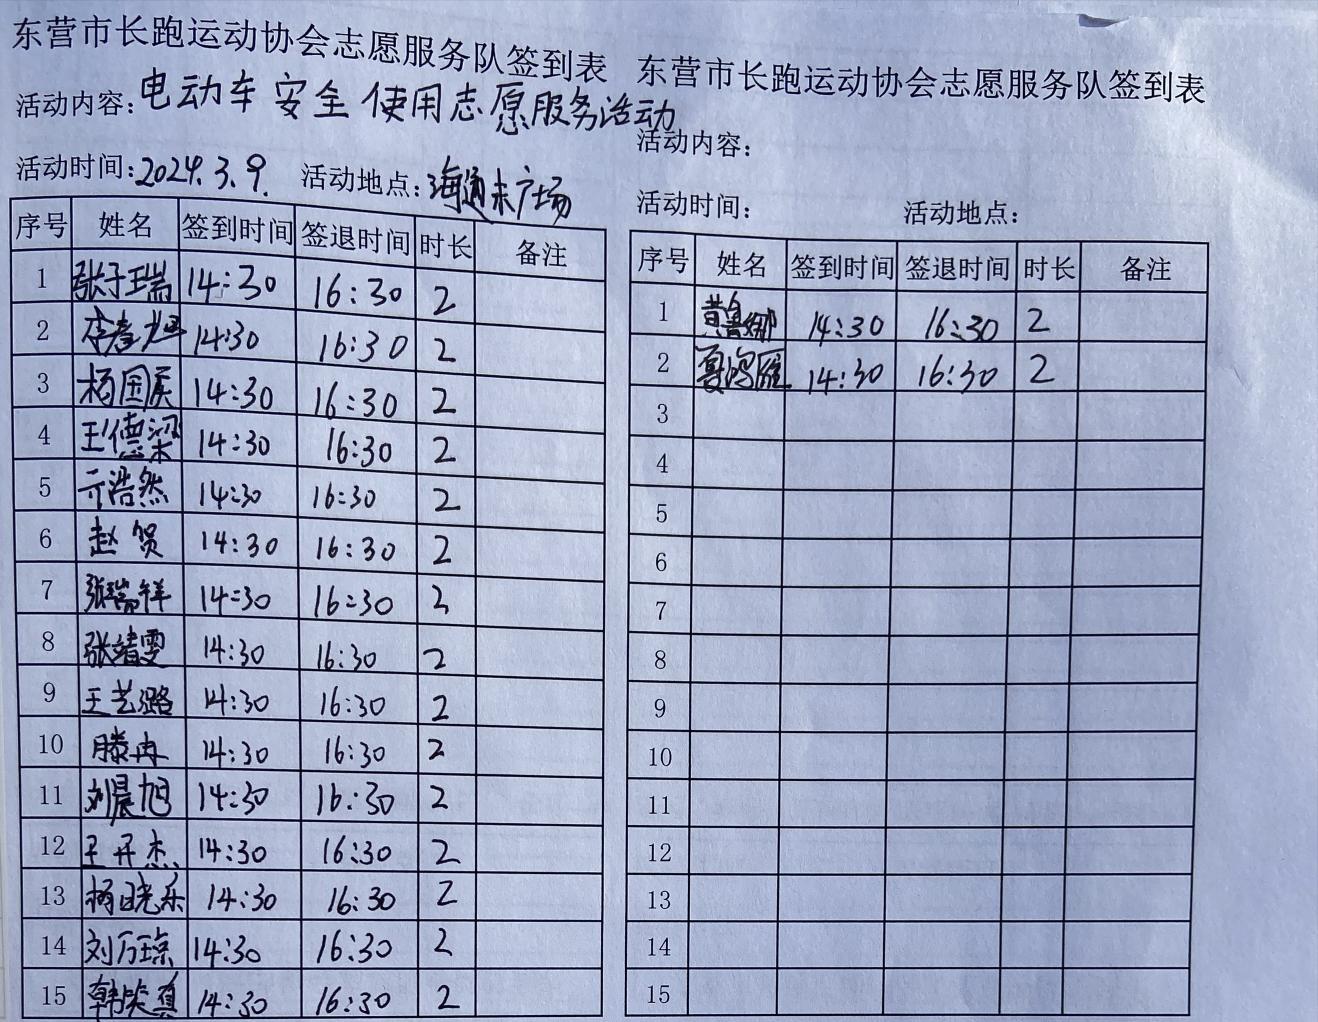 东营市长跑运动协会志愿服务队签到表
活动内容:电动车安全使用志愿服务活动
活动时间:2024.3.9. 活动地点:海通未广场
序号 姓名 签到时间 签退时间 时长 备注
1 张子瑞 14:30 16:30 2
2 14:30 16:30 2
3 杨国庆 14:30 16:30 2
4 王德梁 14:30 16:30 2
5 亓浩然 14:30 16:30 2
6 赵贺 14:30 16:30 2
7 张瑞祥 14:30 16:30 2
8 张靖雯 14:30 16:30 2
9 王艺璐 14:30 16:30 2
10 滕冉 14:30 16:30 2
11 刘晨旭 14:30 16:30 2
12 王开杰 14:30 16:30 2
13 杨晓乐 14:30 16:30 2
14 刘万琼 14:30 16:30 2
15 韩笑真 14:30 16:30 2
东营市长跑运动协会志愿服务队签到表
活动内容:
活动时间: 活动地点:
序号 姓名 签到时间 签退时间 时长 备注
1 黄鲁娜 14:30 16:30 2
2 夏鸿雁 14:30 16:30 2
3
4
5
6
7
8
9
10
11
12
13
14
15